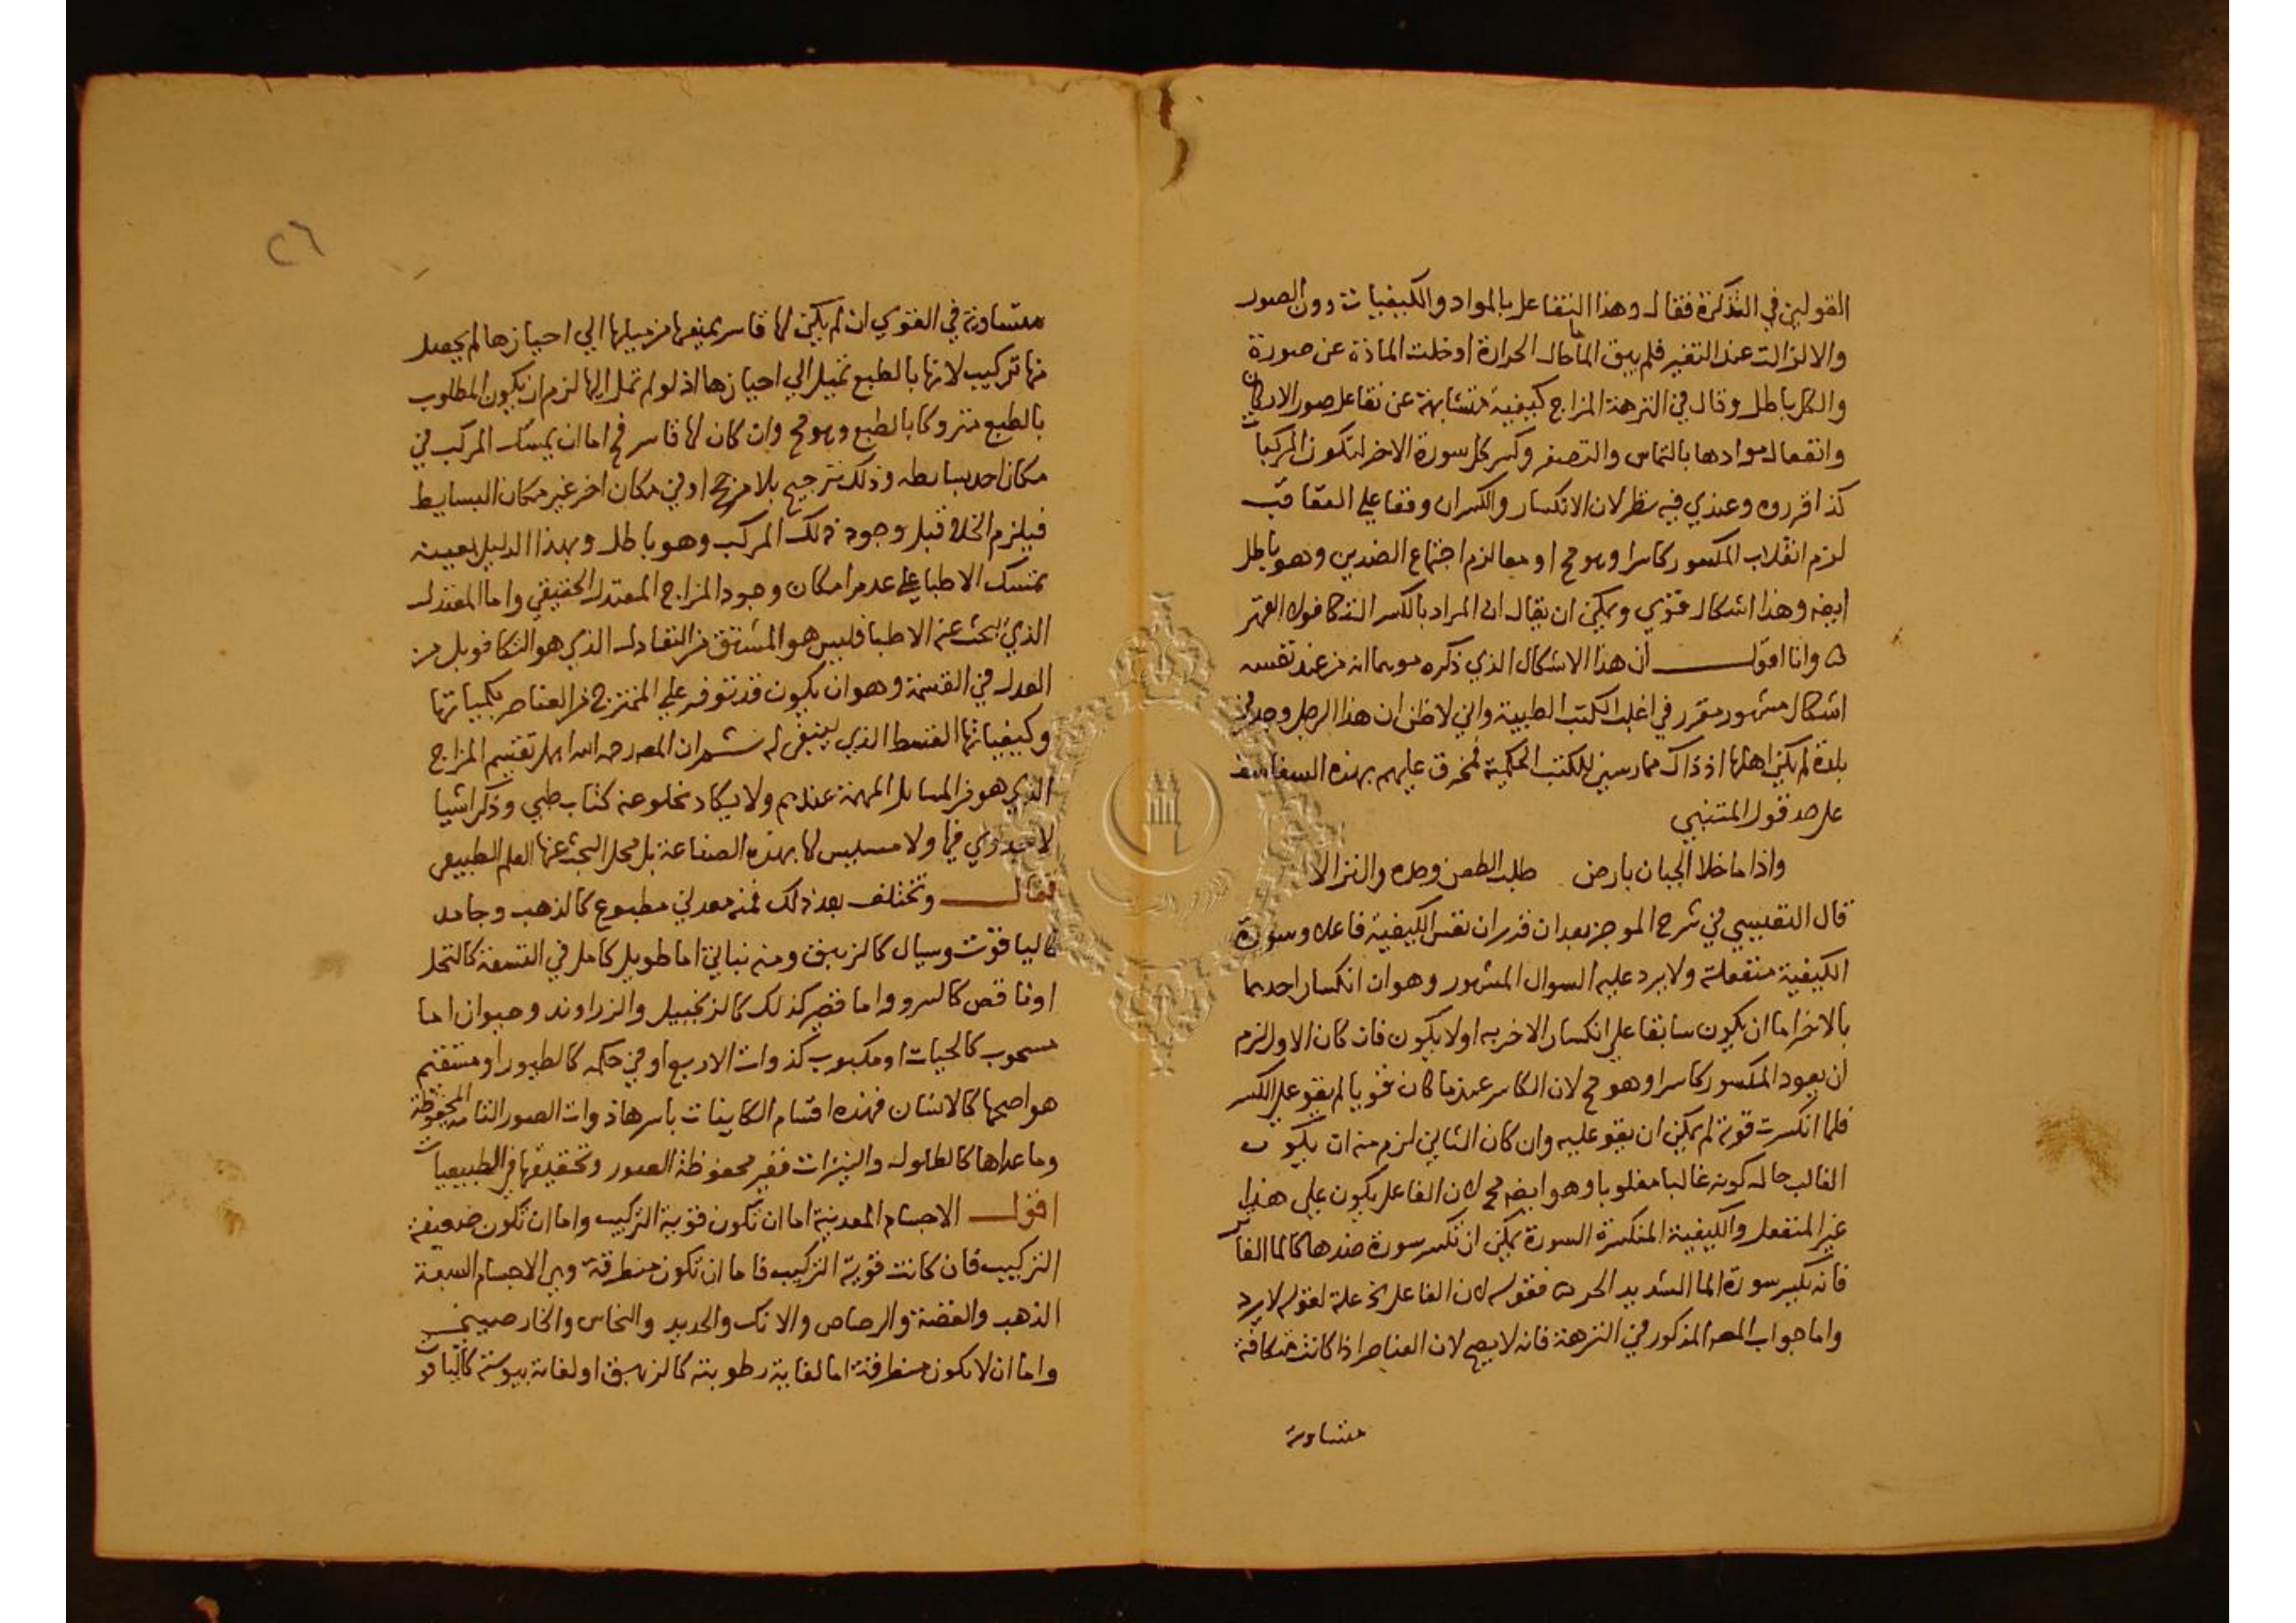 القولين في التذكرة فقال وهذا التفاعل بالمواد والكيفيات دون الصور
والا لزالت عند التغير فلم يبق الما ما حال الحرارة او خلت المادة عن صورة
والكل باطل وقال في النزهة المزاج كيفية متشابهة عن تفاعل صور الاركان
وانفعال موادها بالتماس والتصغر وكسر كل سورة الاخر لتكون المركبات
كذا قرروه وعندي فيه نظر لان الانكسار والكسر ان وقعا على التعاقب
لزم انقلاب المكسور كاسرا وهو مح او معا لزم اجتماع الضدين وهو باطل
ايضه وهذا اشكال قوي ويمكن ان يقال ان المراد بالكسر التكافو لا القهر
ه وانا اقول ان هذا الاشكال الذي ذكره موهما انه من عند نفسه
اشكال مشهور مقرر في اغلب الكتب الطبية واني لاظن ان هذا الرجل وجد في
بلدة لم يكن اهلها اذ ذاك ممارسين للكتب الحكمية فمخرق عليهم بهذه السفاسف
على حد قول المتنبي
واذا ما خلا الجبان بارض طلب الطعن وحده والنزالا
قال التفليسي في شرح الموجز بعد ان قدر ان نفس الكيفية فاعلة وسورة
الكيفية منفعلة ولا يرد عليه السوال المشهور وهو ان انكسار احديهما
بالاخر اما ان يكون سابقا علي انكسار الاخر به اولا يكون فان كان الاول لزم
ان يعود المكسور كاسرا وهو مح لان الكاسر عندما كان قويا لم يقو علي الكسر
فلما انكسرت قوته لم يمكن ان يقو عليه وان كان الثاني لزم منه ان يكون
الغالب حالة كونه غالبا مغلوبا وهو ايضه مح لان الفاعل يكون علي هذا
غير المنفعل والكيفية المنكسرة السورة يمكن ان تكسر سورة ضدها كالما الفاتر
فانه يكسر سورة الما الشديد الحر ه فقوله لان الفاعل الخ علة لقوله لا يرد
واما جواب المص المذكور في النزهة فانه لا يصح لان العناصر اذا كانت متكافة
متساوية
٢٦
متساوية في القوي ان لم يكن لها قاسر يمنعها من ميلها الي احيازها لم يحصل
منها تركيب لانها بالطبع تميل الي احيازها اذ لو لم تمل اليها لزم ان يكون المطلوب
بالطبع متروكا بالطبع وهو مح وان كان لها قاسر فح اما ان يمسك المركب في
مكان احد بسايطه وذلك ترجيح بلا مرجح او في مكان اخر غير مكان البسايط
فيلزم الخلا قبل وجود ذلك المركب وهو باطل وبهذا الدليل بعينه
تمسك الاطبا علي عدم امكان وجود المزاج المعتدل الحقيقي واما المعتدل
الذي يبحث عنه الاطبا فليس هو المشتق من التعادل الذي هو التكافو بل من
العدل في القسمة وهو ان يكون قد توفر علي الممتزج من العناصر بكمياتها
وكيفياتها القسط الذي ينبغي له ثم ان المص رحمه الله اهمل تقسيم المزاج
الذي هو من المسايل المهمة عندهم ولا يكاد يخلو عنه كتاب طبي وذكر اشيا
لا جدوي فيها ولا مسيس لها بهذه الصناعة بل محل البحث عنها العلم الطبيعي
فقال وتختلف بعد ذلك فمنه معدني مطبوع كالذهب وجامد
كالياقوت وسيال كالزيبق ومنه نباتي اما طويل كامل في القسمة كالنخل
او ناقص كالسرو واما قصير كذلك كالزنجبيل والزراوند وحيوان اما
مسحوب كالحيات او مكبوب كذوات الاربع او في حكمه كالطيور او مستقيم
هو اصحها كالانسان فهذه اقسام الكاينات باسرها ذوات الصور التامة المحفوظة
وما عداها كالطلول والنيزات فغير محفوظة الصور وتحقيقها في الطبيعيات
اقول الاجسام المعدنية اما ان تكون قوية التركيب واما ان تكون ضعيفة
التركيب فان كانت قوية التركيب فاما ان تكون منطرقة وهي الاجسام السبعة
الذهب والفضة والرصاص والانك والحديد والنحاس والخارصيني
واما ان لا تكون منطرقة اما لغاية رطوبته كالزيبق او لغاية يبوسته كالياقوت